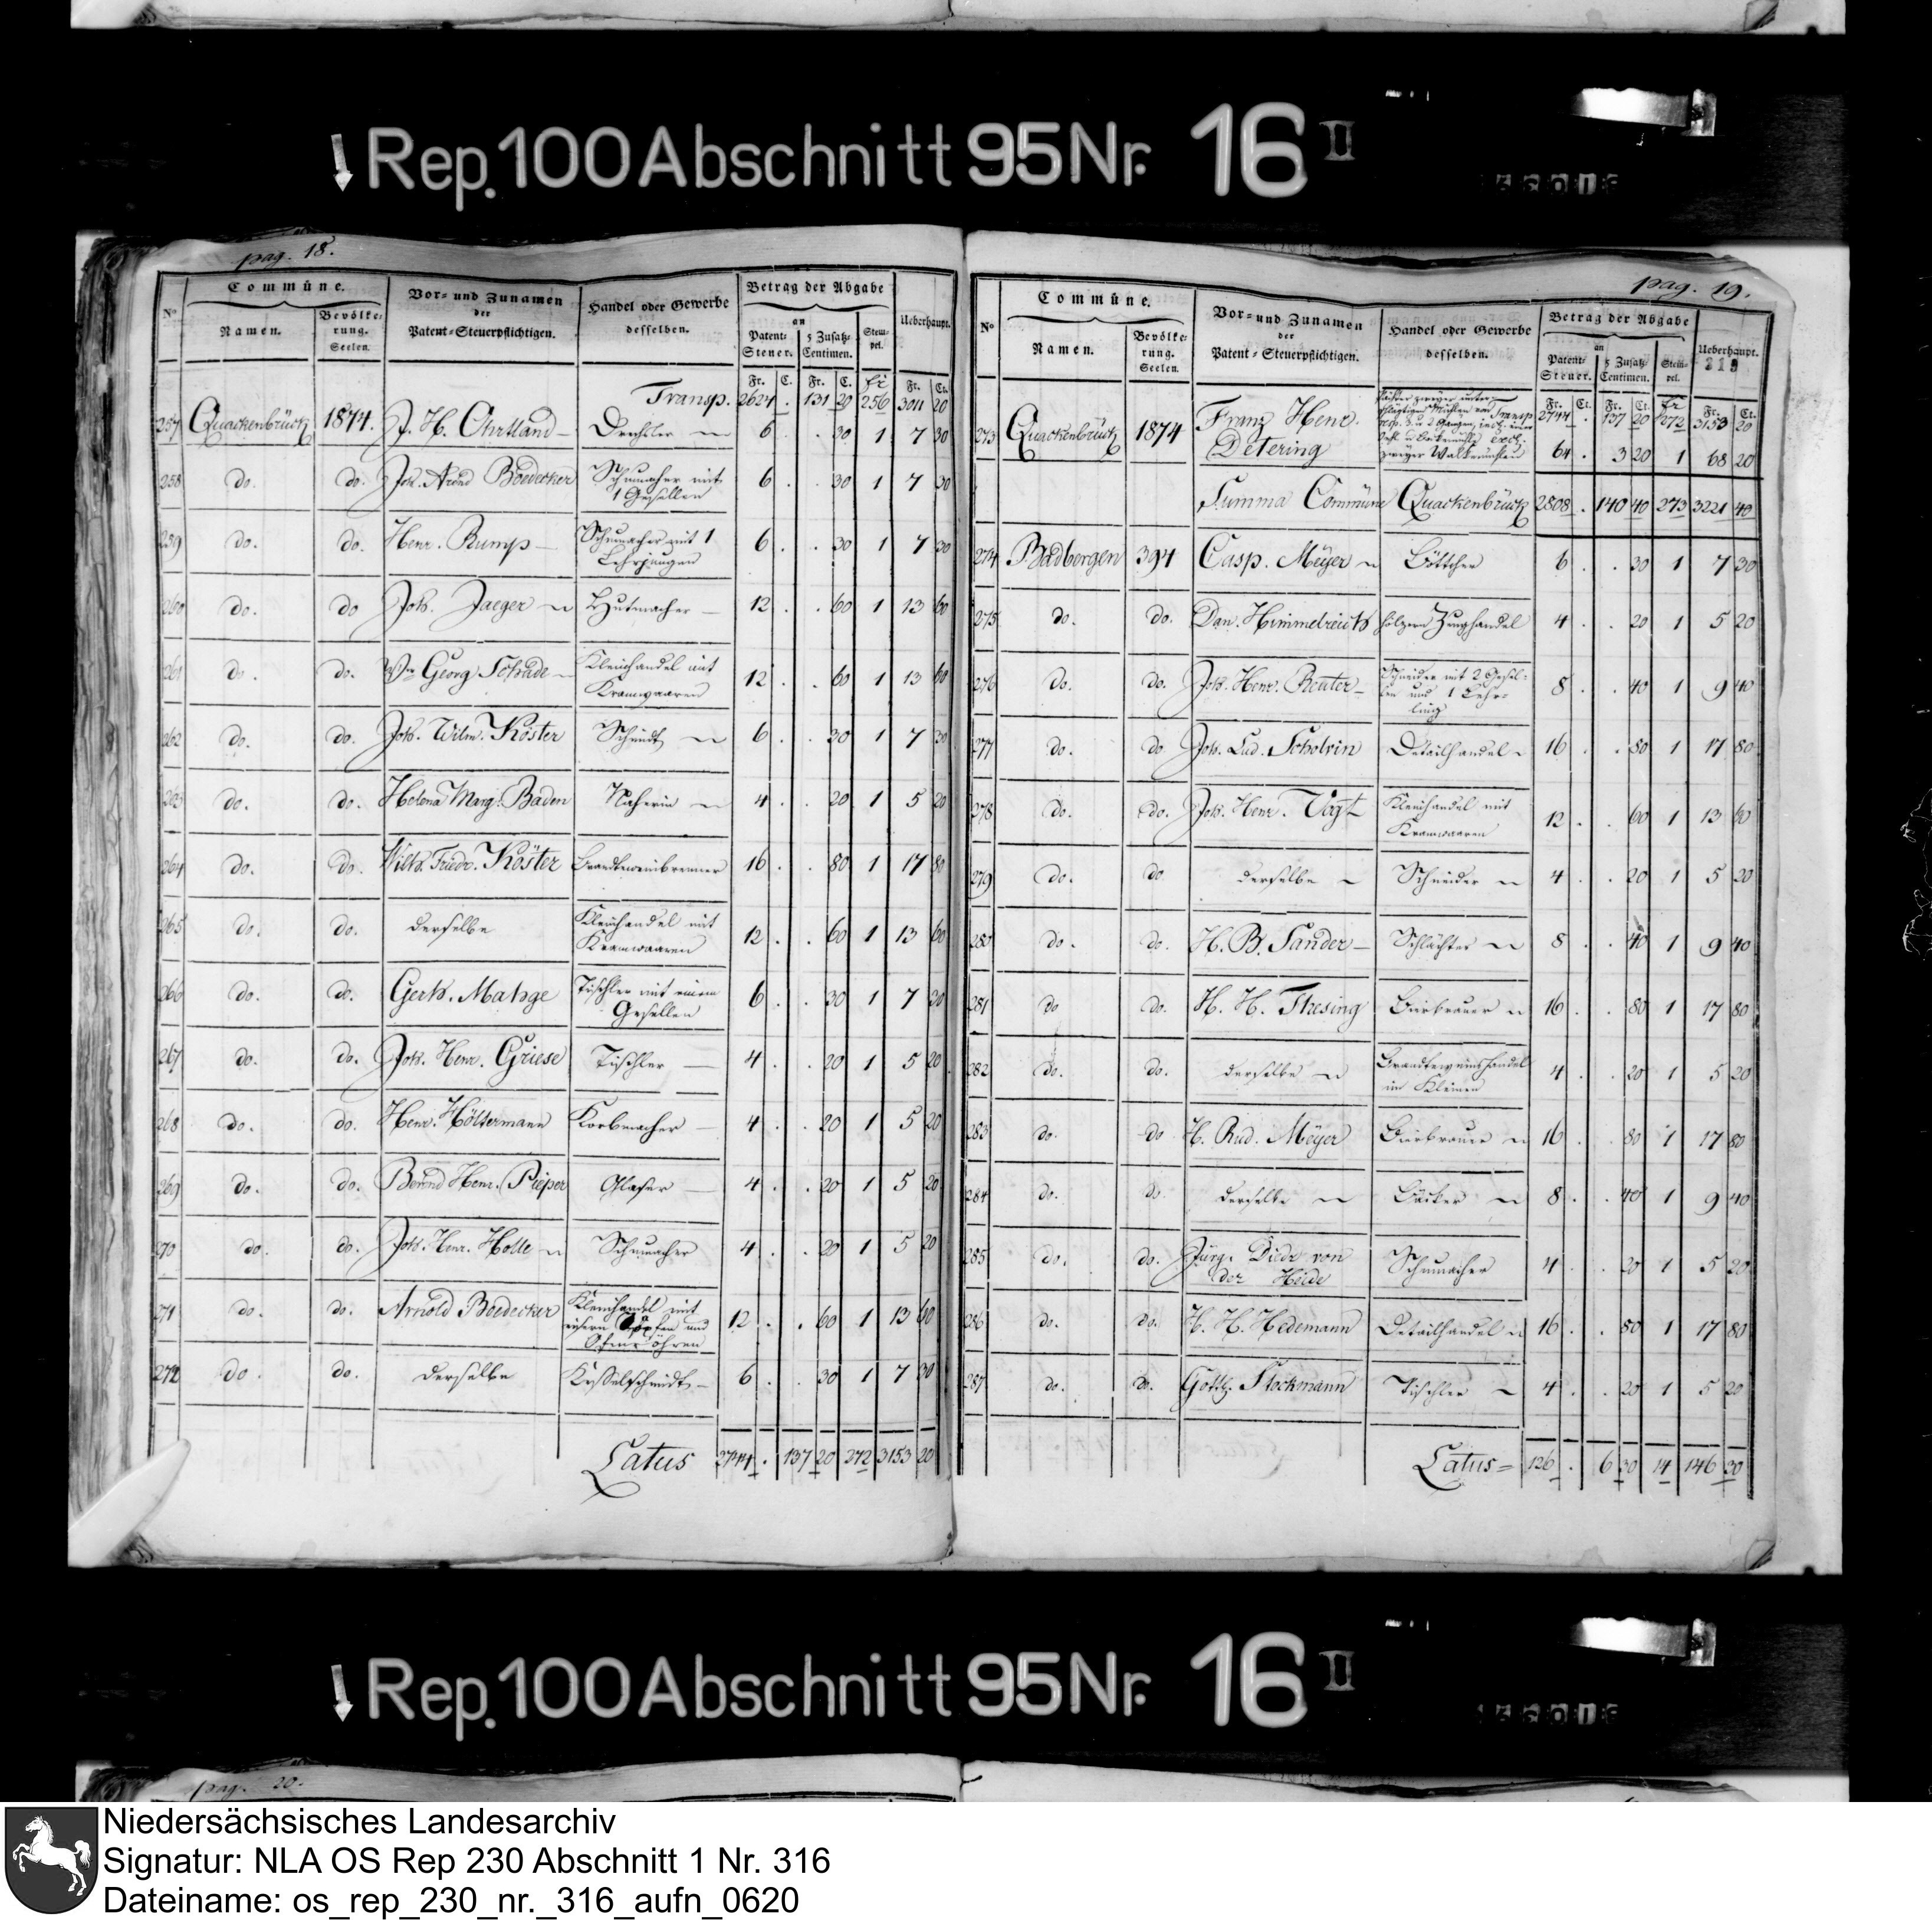 ↓ Rep. 100 Abschnitt 95 Nr. 16 II
pag. 18.
No Commüne. Vor- und Zunamen der Patent-Steuerpflichtigen. Handel oder Gewerbe desselben. Betrag der Abgabe Ueberhaupt.
Namen. Bevölke-rung. Seelen. an Patent-Steuer. 5 Zusatz-Centimen. Stem-pel.
Transp. Fr. C. Fr. C. fr Fr. Ct.
2624 . 131 20 256 3011 20
257 Quackenbrück 1874. J. H. Ohrtland Drechsler 6 . . 30 1 7 30
258 do. do. Joh. Arend Boedecker Schumacher mit 1 Gesellen 6 . . 30 1 7 30
259 do. do. Henr. Rump Schumacher mit 1 Lehrjungen 6 . . 30 1 7 30
260 do. do Joh. Jaeger Hutmacher 12 . . 60 1 13 60
261 do. do. Wm Georg Schade Kleinhandel mit Kramwaaren 12 . . 60 1 13 60
262 do. do. Joh. Wilm. Köster Schmidt 6 . . 30 1 7 30
263 do. do. Helena Marg. Baden Näherin 4 . . 20 1 5 20
264 do. do. Wilh. Friedr. Köster Brandteweinbrenner 16 . . 80 1 17 80
265 do. do. derselbe Kleinhandel mit Kramwaaren 12 . . 60 1 13 60
266 do. do. Gerh. Mahge Tischler mit einem Gesellen 6 . . 30 1 7 30
267 do. do. Joh. Henr. Griese Tischler 4 . . 20 1 5 20
268 do. do. Henr. Höltermann Korbmacher 4 . . 20 1 5 20
269 do. do. Bernd Henr. Pieper Glaser 4 . . 20 1 5 20
270 do. do. Joh. Henr. Holle Schumacher 4 . . 20 1 5 20
271 do. do. Arnold Boedecker Kleinhandel mit eisern Töpfen und Ofenröhren 12 . . 60 1 13 60
272 do. do. derselbe Kesselschmidt 6 . . 30 1 7 30
Latus 2744 . 137 20 272 3153 20
pag. 19.
No Commüne. Vor- und Zunamen der Patent-Steuerpflichtigen. Handel oder Gewerbe desselben. Betrag der Abgabe Ueberhaupt.
Namen. Bevölke-rung. Seelen. an Patent-Steuer. 5 Zusatz-Centimen. Stem-pel. 219
Transp Fr. Ct. Fr. Ct. fr Fr. Ct.
2744 . 137 20 272 3153 20
273 Quackenbrück 1874 Franz Henr. Detering zweyer Walkemühlen 64 . 3 20 1 68 20
Summa Commüne Quackenbrück 2808 . 140 40 273 3221 40
274 Badbergen 394 Casp. Meÿer Böttcher 6 . . 30 1 7 30
275 do. do. Dan. Himmelreich hölzern Zeughandel 4 . . 20 1 5 20
276 do. do. Joh. Henr. Reuter Schneider mit 2 Gesel-len und 1 Lehr-ling 8 . . 40 1 9 40
277 do. do Joh. Lud. Scholvin Detailhandel 16 . . 80 1 17 80
278 do. do. Joh. Henr. Vogt Kleinhandel mit Kramwaaren 12 . . 60 1 13 60
279 do. do derselbe Schneider 4 . . 20 1 5 20
280 do. do. H. B. Sander Schlächter 8 . . 40 1 9 40
281 do do. H. H. Thesing Bierbrauer 16 . . 80 1 17 80
282 do. do. derselbe Brandteweinshandel im Kleinen 4 . . 20 1 5 20
283 do. do H. Rud. Meÿer Bierbrauer 16 . . 80 1 17 80
284 do. do. derselbe Bäcker 8 . . 40 1 9 40
285 do. do. Jürg. Diedr von der Heide Schumacher 4 . . 20 1 5 20
286 do. do. H. H. Hedemann Detailhandel 16 . . 80 1 17 80
287 do. do. Gottl. Stockmann Tischler 4 . . 20 1 5 20
Latus = 126 . 6 30 14 146 30
↓ Rep. 100 Abschnitt 95 Nr. 16 II
pag. 20.
Niedersächsisches Landesarchiv
Signatur: NLA OS Rep 230 Abschnitt 1 Nr. 316
Dateiname: os_rep_230_nr._316_aufn_0620